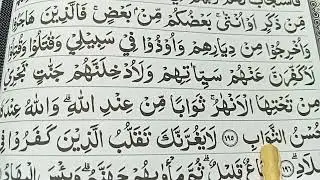 فَاسْتَجَابَ لَهُمْ رَبُّهُمْ
مِّنْ ذَكَرٍ اَوْ اُنْثٰى ۚ بَعْضُكُمْ مِّنْۢ بَعْضٍ ۚ فَالَّذِيْنَ هَاجَرُوْا
وَاُخْرِجُوْا مِنْ دِيَارِهِمْ وَاُوْذُوْا فِيْ سَبِيْلِيْ وَقٰتَلُوْا وَقُتِلُوْا
لَاُكَفِّرَنَّ عَنْهُمْ سَيِّاٰتِهِمْ وَلَاُدْخِلَنَّهُمْ جَنّٰتٍ تَجْرِيْ
مِنْ تَحْتِهَا الْاَنْهٰرُ ۚ ثَوَابًا مِّنْ عِنْدِ اللّٰهِ ۗ وَاللّٰهُ عِنْدَهٗ
حُسْنُ الثَّوَابِ ۝١٩٥ لَا يَغُرَّنَّكَ تَقَلُّبُ الَّذِيْنَ كَفَرُوْا فِي
لَادِ ۝١٩٦ مَتَاعٌ قَلِيْلٌ ۣ ثُمَّ مَاْوٰىهُمْ جَهَنَّمُ ۗ وَبِئْسَ الْمِهَادُ